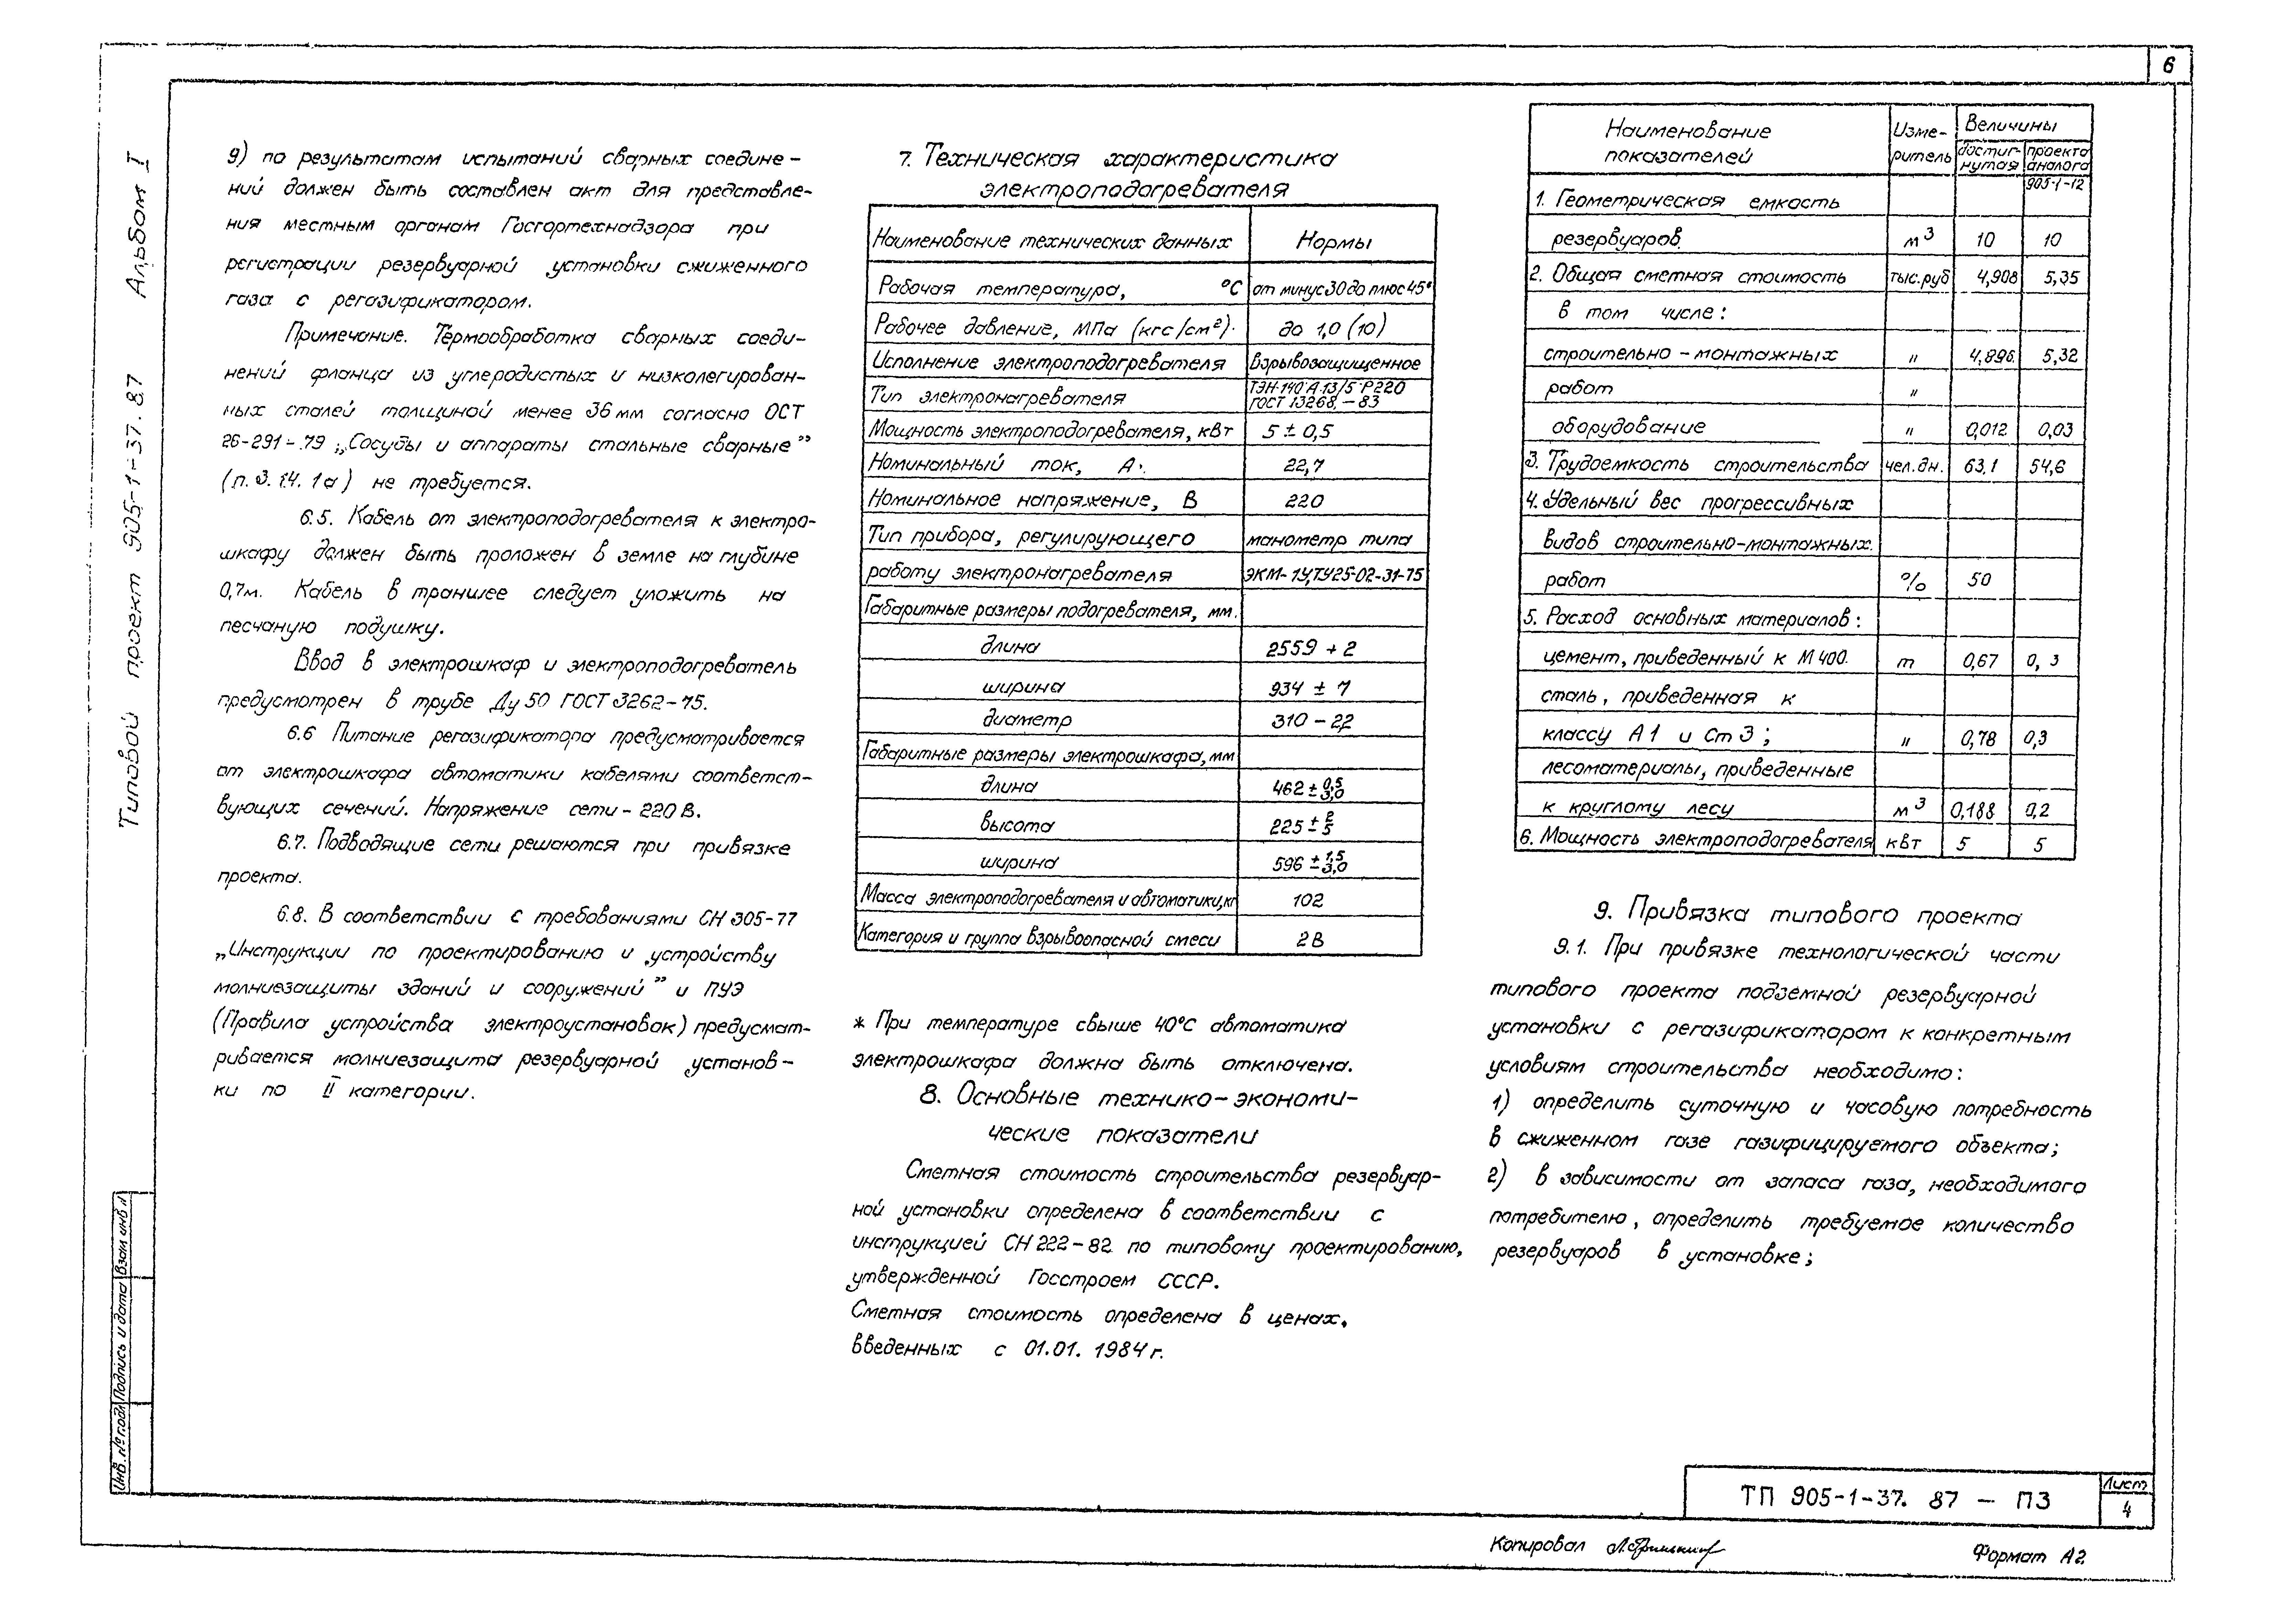 6
Типовой проект 905-1-37.87 Альбом I
9) по результатам испытаний сварных соедине-
ний должен быть составлен акт для представле-
ния местным органам Госгортехнадзора при
регистрации резервуарной установки сжиженного
газа с регазификатором.
Примечание. Термообработка сварных соеди-
нений фланца из углеродистых и низколегирован-
ных сталей толщиной менее 36 мм согласно ОСТ
26-291-79 „Сосуды и аппараты стальные сварные”
(п. 3. 14. 1а) не требуется.
6.5. Кабель от электроподогревателя к электро-
шкафу должен быть проложен в земле на глубине
0,7м. Кабель в траншее следует уложить на
песчаную подушку.
Ввод в электрошкаф и электроподогреватель
предусмотрен в трубе Ду 50 ГОСТ 3262-75.
6.6 Питание регазификатора предусматривается
от электрошкафа автоматики кабелями соответст-
вующих сечений. Напряжение сети - 220 В.
6.7. Подводящие сети решаются при привязке
проекта.
6.8. В соответствии с требованиями СН 305-77
„Инструкции по проектированию и устройству
молниезащиты зданий и сооружений” и ПУЭ
(Правила устройства электроустановок) предусмат-
ривается молниезащита резервуарной установ-
ки по II категории.
7. Техническая характеристика
электроподогревателя
Наименование технических данных Нормы
Рабочая температура, °С от минус 30 до плюс 45*
Рабочее давление, МПа (кгс/см²). до 1,0 (10)
Исполнение электроподогревателя Взрывозащищенное
Тип электронагревателя ТЭН-140 А 13/5 Р220
ГОСТ 13268. - 83
Мощность электроподогревателя, кВт 5 ± 0,5
Номинальный ток, А. 22,7
Номинальное напряжение, В 220
Тип прибора, регулирующего манометр типа
работу электронагревателя ЭКМ-1У,ТУ25-02-31-75
Габаритные размеры подогревателя, мм.
длина 2559 + 2
ширина 934 ± 7
диаметр 310 - 22
Габаритные размеры электрошкафа, мм
длина 462 ± 0,5 3,0
высота 225 ± 2 5
ширина 596 ± 1,5 3,0
Масса электроподогревателя и автоматики,кг 102
Категория и группа взрывоопасной смеси 2В
* При температуре свыше 40°С автоматика
электрошкафа должна быть отключена.
8. Основные технико-экономи-
ческие показатели
Сметная стоимость строительства резервуар-
ной установки определена в соответствии с
инструкцией СН 222-82 по типовому проектированию,
утвержденной Госстроем СССР.
Сметная стоимость определена в ценах,
введенных с 01.01. 1984 г.
Наименование показателей Изме-ритель Величины
достиг-нутая проекта аналога
905-1-12
1. Геометрическая емкость
резервуаров м³ 10 10
2. Общая сметная стоимость тыс.руб 4,908 5,35
в том числе:
строительно-монтажных " 4,896 5,32
работ "
оборудование " 0,012 0,03
3. Трудоемкость строительства чел.дн. 63,1 54,6
4. Удельный вес прогрессивных
видов строительно-монтажных
работ % 50
5. Расход основных материалов:
цемент, приведенный к М 400. т 0,67 0, 3
сталь, приведенная к
классу А1 и Ст3; " 0,78 0,3
лесоматериалы, приведенные
к круглому лесу м³ 0,188 0,2
6. Мощность электроподогревателя кВт 5 5
9. Привязка типового проекта
9.1. При привязке технологической части
типового проекта подземной резервуарной
установки с регазификатором к конкретным
условиям строительства необходимо:
1) определить суточную и часовую потребность
в сжиженном газе газифицируемого объекта;
2) в зависимости от запаса газа, необходимого
потребителю, определить требуемое количество
резервуаров в установке;
Инв. № подл Подпись и дата Взам инв.№
ТП 905-1-37. 87 - ПЗ
Лист
4
Копировал
Формат А2